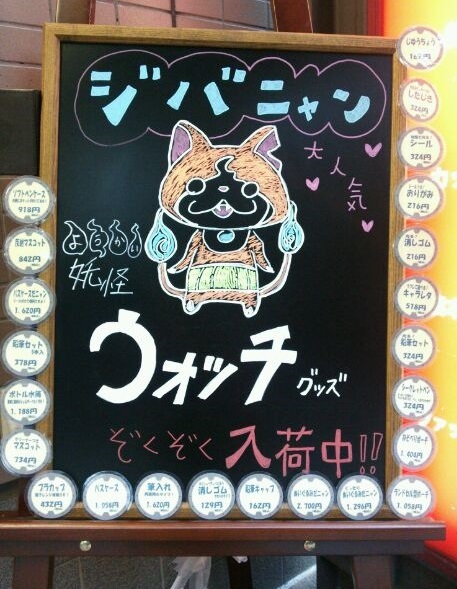 ジバニャン
大人気
ようかい
妖怪
ウォッチ
グッズ
ぞくぞく入荷中!!
じゆうちょう
したじき
324円
シール
324円
おりがみ
216円
消しゴム
216円
キャラレタ
578円
鉛筆セット
324円
シークレットペン
324円
1,404円
ランドセル型ポーチ
1,058円
ソフトペンケース
918円
マスコット
842円
パスケースジバニャン
1,620円
鉛筆セット
378円
ボトル水筒
1,188円
マスコット
734円
プラカップ
432円
パスケース
1,058円
筆入れ
1,620円
消しゴム
129円
鉛筆キャップ
162円
ぬいぐるみジバニャン
2,700円
ぬいぐるみジバニャン
1,296円